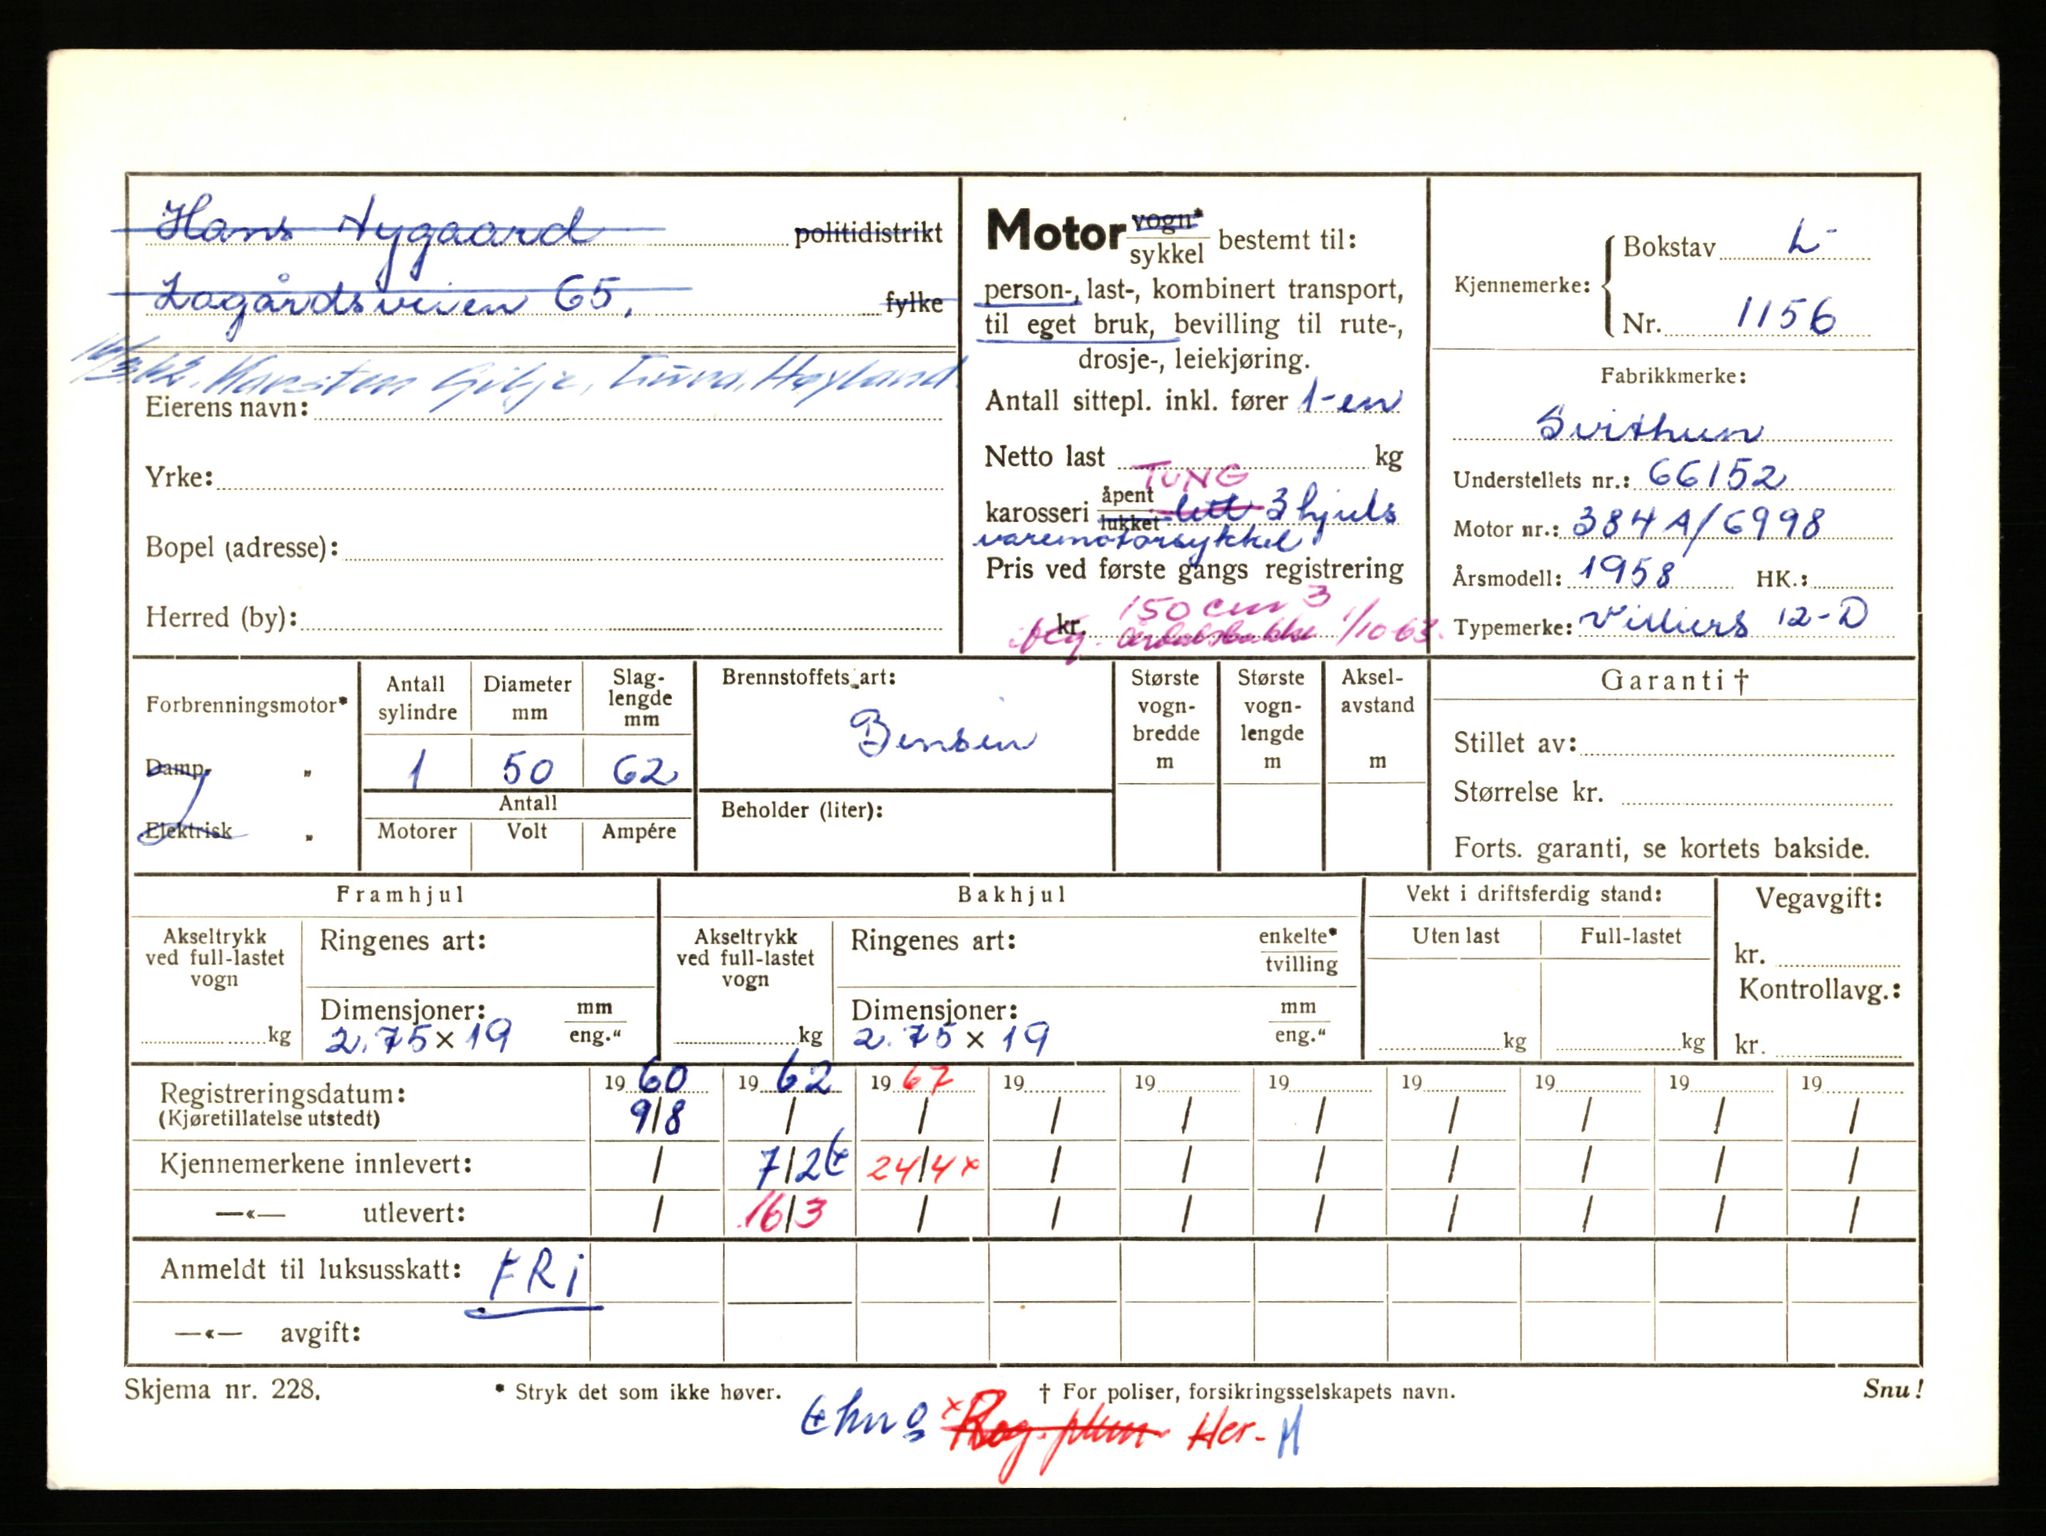 Hans Nygaard politidistrikt
Lagårdsveien 65, fylke
16/3.62. Karsten Gilje, Høyland
Eierens navn:
Yrke:
Bopel (adresse):
Herred (by):
Motor vogn* sykkel bestemt til:
person-, last-, kombinert transport,
til eget bruk, bevilling til rute-,
drosje-, leiekjøring.
Antall sittepl. inkl. fører 1-en
Netto last kg
TUNG
karosseri åpent lukket lett 3 hjuls
varemotorsykkel
Pris ved første gangs registrering
150 cm3
kr. 1/10-63.
Kjennemerke: Bokstav L-
Nr. 1156
Fabrikkmerke:
Svithun
Understellets nr.: 66152
Motor nr.: 384A/6998
Årsmodell: 1958 HK.:
Typemerke: Villiers 12-D
Forbrenningsmotor*
Damp- „
Elektrisk „
Antall sylindre
Diameter mm
Slag-lengde mm
1 50 62
Antall
Motorer Volt Ampére
Brennstoffets art:
Bensin
Beholder (liter):
Største vogn-bredde m
Største vogn-lengde m
Aksel-avstand m
Garanti †
Stillet av:
Størrelse kr.
Forts. garanti, se kortets bakside.
Framhjul
Akseltrykk ved full-lastet vogn
kg
Ringenes art:
Dimensjoner: mm
2.75 × 19 eng."
Bakhjul
Akseltrykk ved full-lastet vogn
kg
Ringenes art: enkelte* tvilling
Dimensjoner: mm
2.75 × 19 eng."
Vekt i driftsferdig stand:
Uten last Full-lastet
kg kg
Vegavgift:
kr.
Kontrollavg.:
kr.
Registreringsdatum: 19 60 19 62 19 67 19 19 19 19 19 19 19
(Kjøretillatelse utstedt) 9/8 / / / / / / / / /
Kjennemerkene innlevert: / 7/2 24/4 x / / / / / / /
—«— utlevert: / 16/3 / / / / / / / /
Anmeldt til luksusskatt: FRi
—«— avgift:
Skjema nr. 228.
* Stryk det som ikke høver.
† For poliser, forsikringsselskapets navn.
Snu!
x Her-M